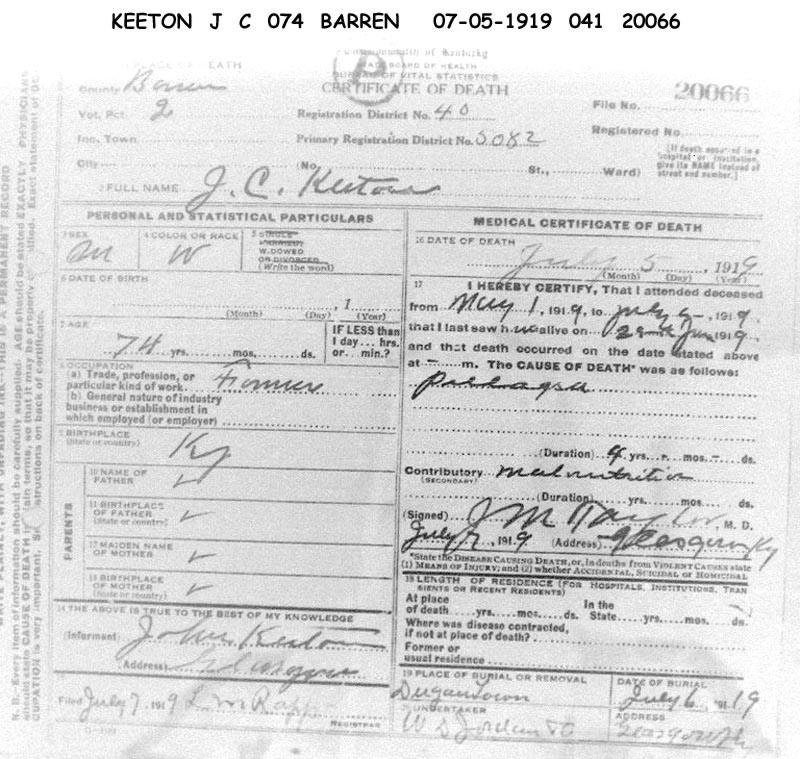 KEETON J C 074 BARREN 07-05-1919 041 20066
Commonwealth of Kentucky
STATE BOARD OF HEALTH
BUREAU OF VITAL STATISTICS
PLACE OF DEATH
CERTIFICATE OF DEATH
County Barren
20066
File No.
Vot. Pct. 2
Registration District No. 40
Registered No.
Inc. Town
Primary Registration District No. 5082
[If death occurred in a hospital or institution, give its NAME instead of street and number.]
City (No. St., Ward)
2 FULL NAME J. C. Keeton
PERSONAL AND STATISTICAL PARTICULARS
3 SEX M
4 COLOR OR RACE W
5 SINGLE
MARRIED
WIDOWED
OR DIVORCED
(Write the word)
6 DATE OF BIRTH
, 1
(Month) (Day) (Year)
7 AGE
74 yrs. mos. ds.
IF LESS than
1 day... hrs.
or... min.?
8 OCCUPATION
(a) Trade, profession, or
particular kind of work Farmer
(b) General nature of industry
business or establishment in
which employed (or employer)
9 BIRTHPLACE
(State or country) Ky
PARENTS
10 NAME OF
FATHER
11 BIRTHPLACE
OF FATHER
(State or country)
12 MAIDEN NAME
OF MOTHER
13 BIRTHPLACE
OF MOTHER
(State or country)
14 THE ABOVE IS TRUE TO THE BEST OF MY KNOWLEDGE
(Informant) John Keeton
(Address) Glasgow
Filed July 7, 1919 L. M. Rapp
REGISTRAR
MEDICAL CERTIFICATE OF DEATH
16 DATE OF DEATH
July 5, 1919
(Month) (Day) (Year)
17 I HEREBY CERTIFY, That I attended deceased
from May 1, 1919, to July 5, 1919,
that I last saw h im alive on 29th Jun 1919,
and that death occurred on the date stated above
at - m. The CAUSE OF DEATH* was as follows:
Pellagra
(Duration) 4 yrs. - mos. - ds.
Contributory Malnutrition
(SECONDARY)
(Duration) yrs. mos. ds.
(Signed) J M Taylor, M. D.
July 7, 1919 (Address) Glasgow Ky
*State the DISEASE CAUSING DEATH, or, in deaths from VIOLENT CAUSES state
(1) MEANS OF INJURY; and (2) whether ACCIDENTAL, SUICIDAL or HOMICIDAL
18 LENGTH OF RESIDENCE (FOR HOSPITALS, INSTITUTIONS, TRAN
SIENTS OR RECENT RESIDENTS)
At place In the
of death yrs. mos. ds. State yrs. mos. ds.
Where was disease contracted,
if not at place of death?
Former or
usual residence
19 PLACE OF BURIAL OR REMOVAL
Dugantown
DATE OF BURIAL
July 6, 1919
20 UNDERTAKER
W S Jordan & Co
ADDRESS
Glasgow Ky